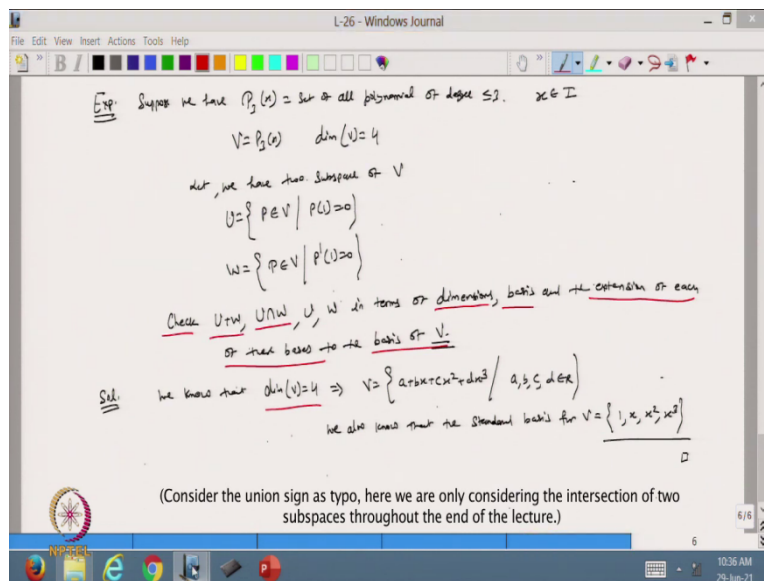 L-26 - Windows Journal
File Edit View Insert Actions Tools Help
Exp. Suppose we have P₃(x) = Set of all polynomial of degree ≤3. x∈I
V=P₃(x) dim(V)=4
Let, we have two subspace of V
U={ P∈V | P(1)=0}
W={ P∈V | P'(1)=0}
Check U+W, U∩W, U, W in terms of dimensions, basis and the extension of each
of these bases to the basis of V.
Sol. We know that dim(V)=4 ⇒ V={a+bx+cx²+dx³ / a,b,c,d∈R}
We also know that the standard basis for V={1,x,x²,x³}
(Consider the union sign as typo, here we are only considering the intersection of two
subspaces throughout the end of the lecture.)
6/6
6
NPTEL
10:36 AM
29-Jun-21